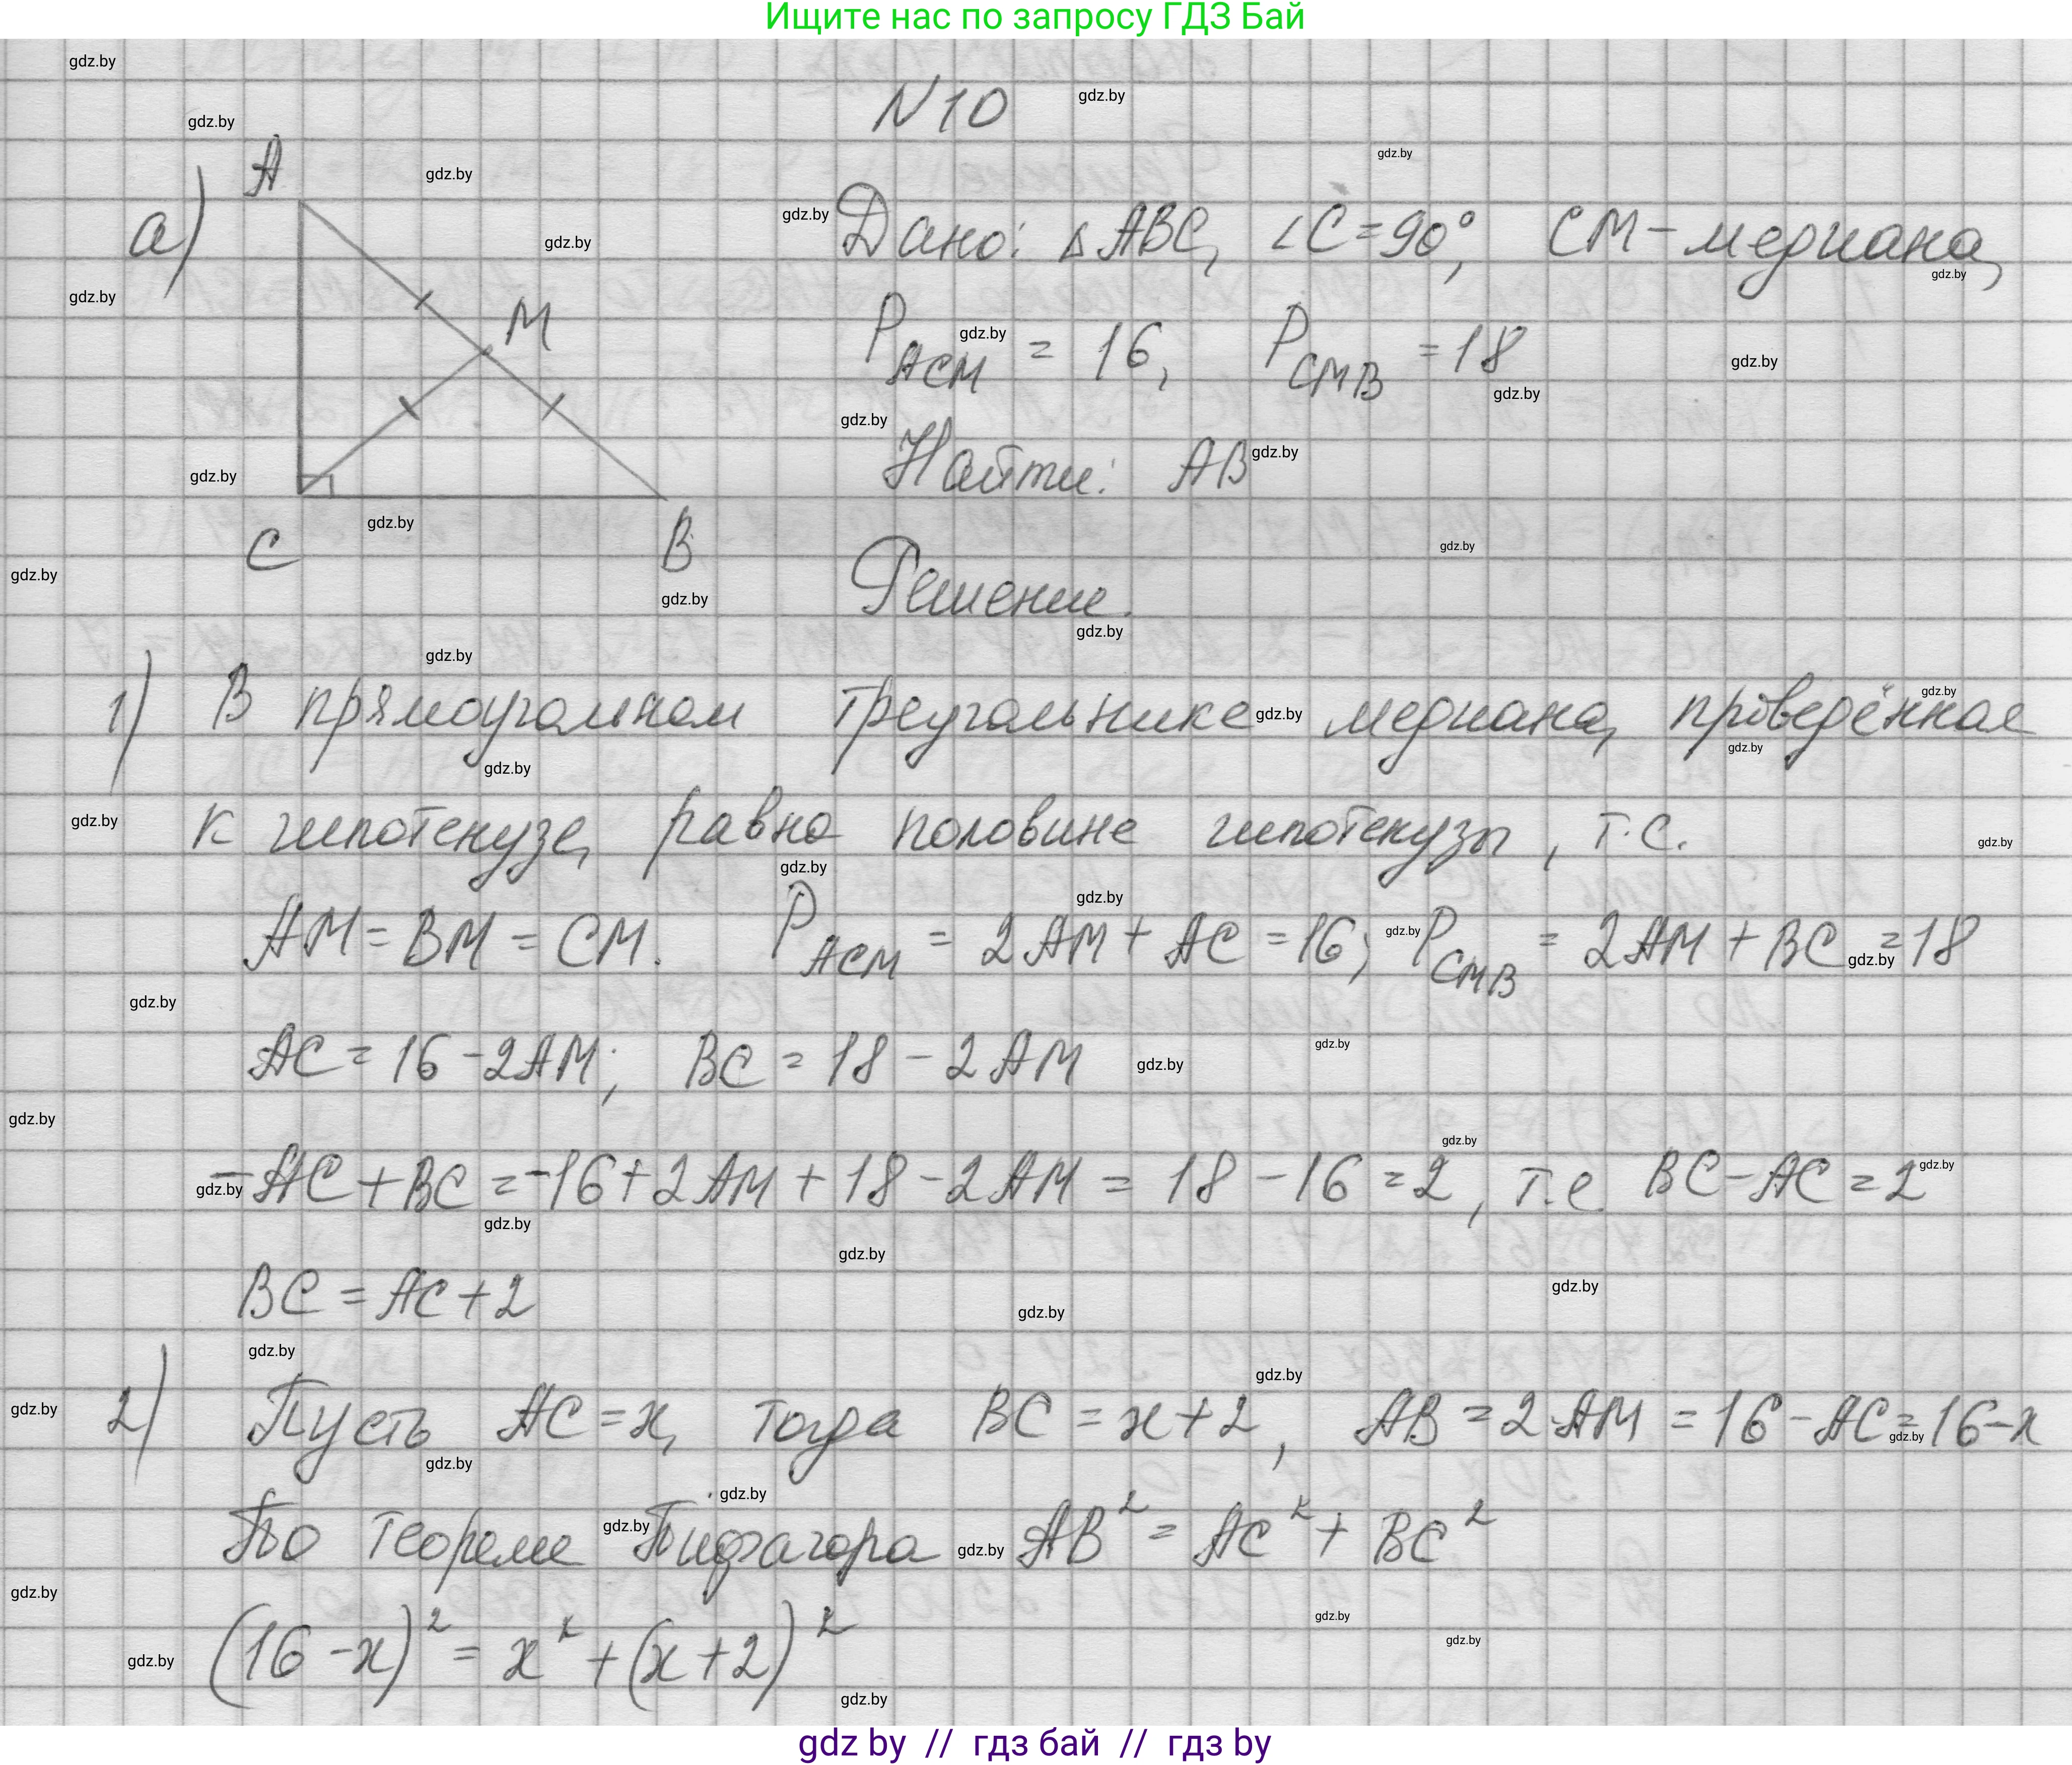 Ищите нас по запросу ГДЗ Бай
N10
а)
A
M
C
B
Дано: △ABC, ∠C=90°, CM-медиана,
P_ACM = 16, P_CMB = 18
Найти: AB
Решение.
1) В прямоугольном треугольнике медиана, проведённая
к гипотенузе, равна половине гипотенузы, т.е.
AM = BM = CM. P_ACM = 2AM + AC = 16; P_CMB = 2AM + BC = 18
AC = 16 - 2AM; BC = 18 - 2AM
-AC + BC = -16 + 2AM + 18 - 2AM = 18 - 16 = 2, т.е BC - AC = 2
BC = AC + 2
2) Пусть AC = x, тогда BC = x + 2, AB = 2AM = 16 - AC = 16 - x
По теореме Пифагора AB² = AC² + BC²
(16 - x)² = x² + (x + 2)²
gdz by // гдз бай // гдз by